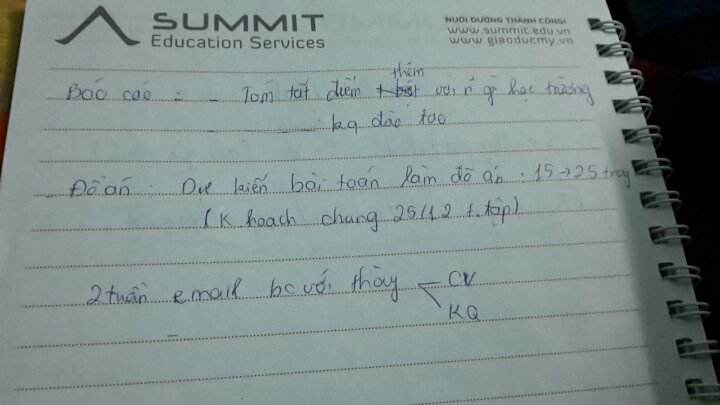 SUMMIT
Education Services
NUÔI DƯỠNG THÀNH CÔNG!
www.summit.edu.vn
www.giaoducmy.vn
thêm
Báo cáo : - Tóm tắt điểm với n gì học trường
kq đào tạo
Đồ án : Dự kiến bài toán làm đồ án : 15 → 25 trag
(K hoạch chung 25/12 t.tập)
2 tuần email bc với thày CV
KQ